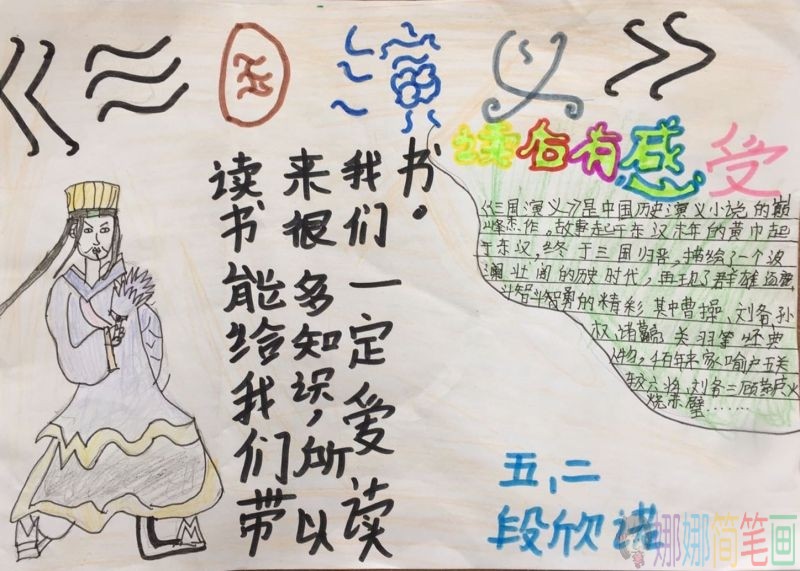 《三国演义》
读书能给我们带
来很多知识,所以
我们一定爱读
书。
读后有感受
《三国演义》是中国历史演义小说的巅
峰杰作。故事起于东汉末年的黄巾起
于东汉,终于三国归晋。描绘了一个波
澜壮阔的历史时代,再现了群雄逐鹿
斗智斗勇的精彩 其中曹操、刘备、孙
权、诸葛亮、关羽等 典
人物,百年来家喻户五关
六将、刘备三顾茅庐火
烧赤壁……
五,二
段欣
娜娜简笔画